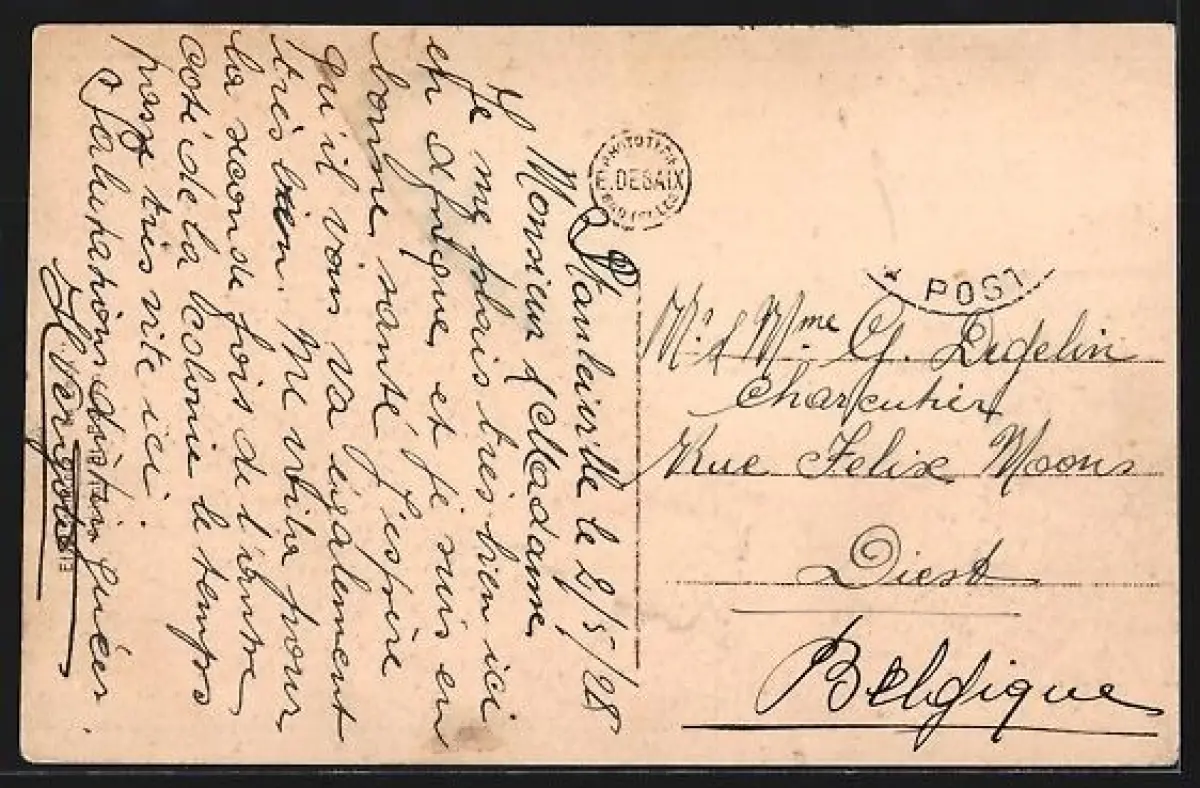 Stanleyville le 2/5/28
Monsieur & Madame,
Je me plais très bien ici
en Afrique, et je suis en
bonne santé j'espère
qu'il vous va également
très bien. Me voila pour
la seconde fois de l'autre
coté de la Colonie le temps
passe très vite ici.
Salutations
PHOTOTYPIE
E. DESAIX
BRUXELLES
* POST
Mr & Mme G. Degelin
Charcutier
Rue Felix Moons
Diest
Belgique